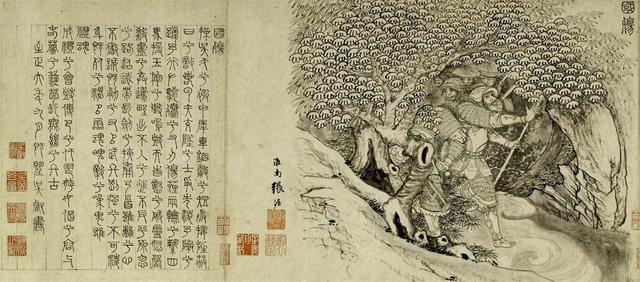 國殤
淮南張渥
國殤
操吳戈兮被犀甲車錯轂兮短兵接旌蔽
日兮敵若雲矢交墜兮士爭先凌余陣兮
躐余行左驂殪兮右刃傷霾兩輪兮縶四
馬援玉枹兮擊鳴鼓天時懟兮威靈怒嚴
殺盡兮棄原壄出不入兮往不反平原忽
兮路超遠帶長劍兮挾秦弓首雖離兮心
不懲誠既勇兮又以武終剛強兮不可凌
身既死兮神以靈魂魄毅兮為鬼雄
禮魂
成禮兮會鼓傳芭兮代舞姱女倡兮容與
春蘭兮秋菊長無絕兮終古
至正六年九月吳叡書